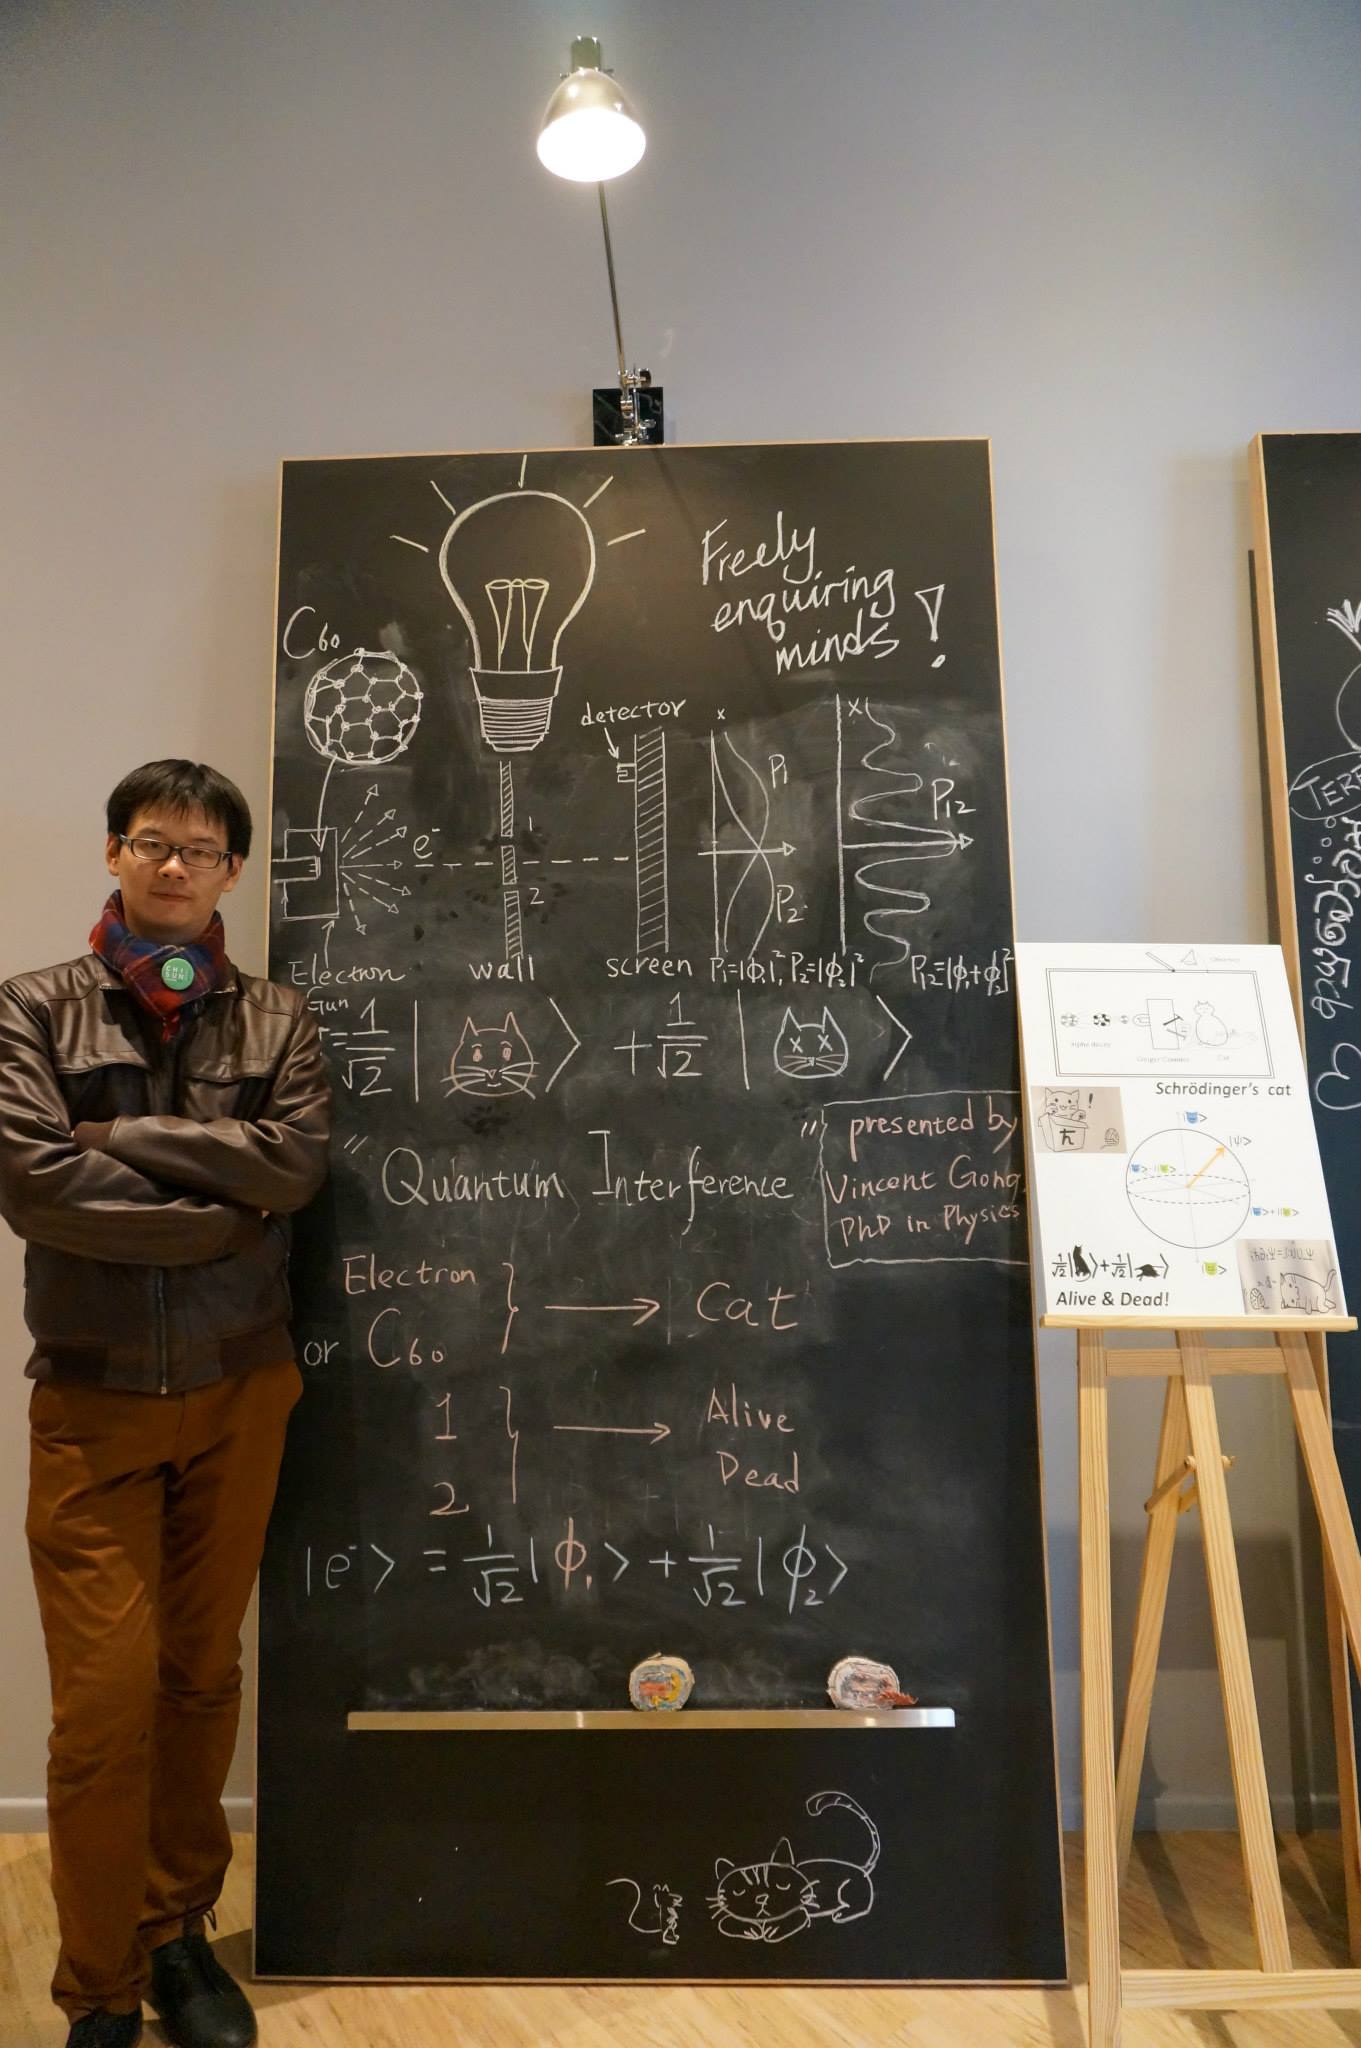 Freely
enquiring
minds!
C₆₀
detector
x
x
P₁
P₁₂
e⁻
1
2
P₂
Electron
Gun
wall
screen
P₁=|ϕ₁|², P₂=|ϕ₂|²
P₁₂=|ϕ₁+ϕ₂|²
=1/√2 | 〉 + 1/√2 | 〉
"Quantum Interference"
presented by
Vincent Gong,
PhD in Physics
Electron
or C₆₀ } → Cat
1
2 } → Alive
Dead
|e⁻> = 1/√2|ϕ₁> + 1/√2|ϕ₂>
CHI
SUN
alpha decay
Geiger Counter
Cat
Schrödinger's cat
!
ħ
|ψ>
1/√2| >+1/√2| >
Alive & Dead!